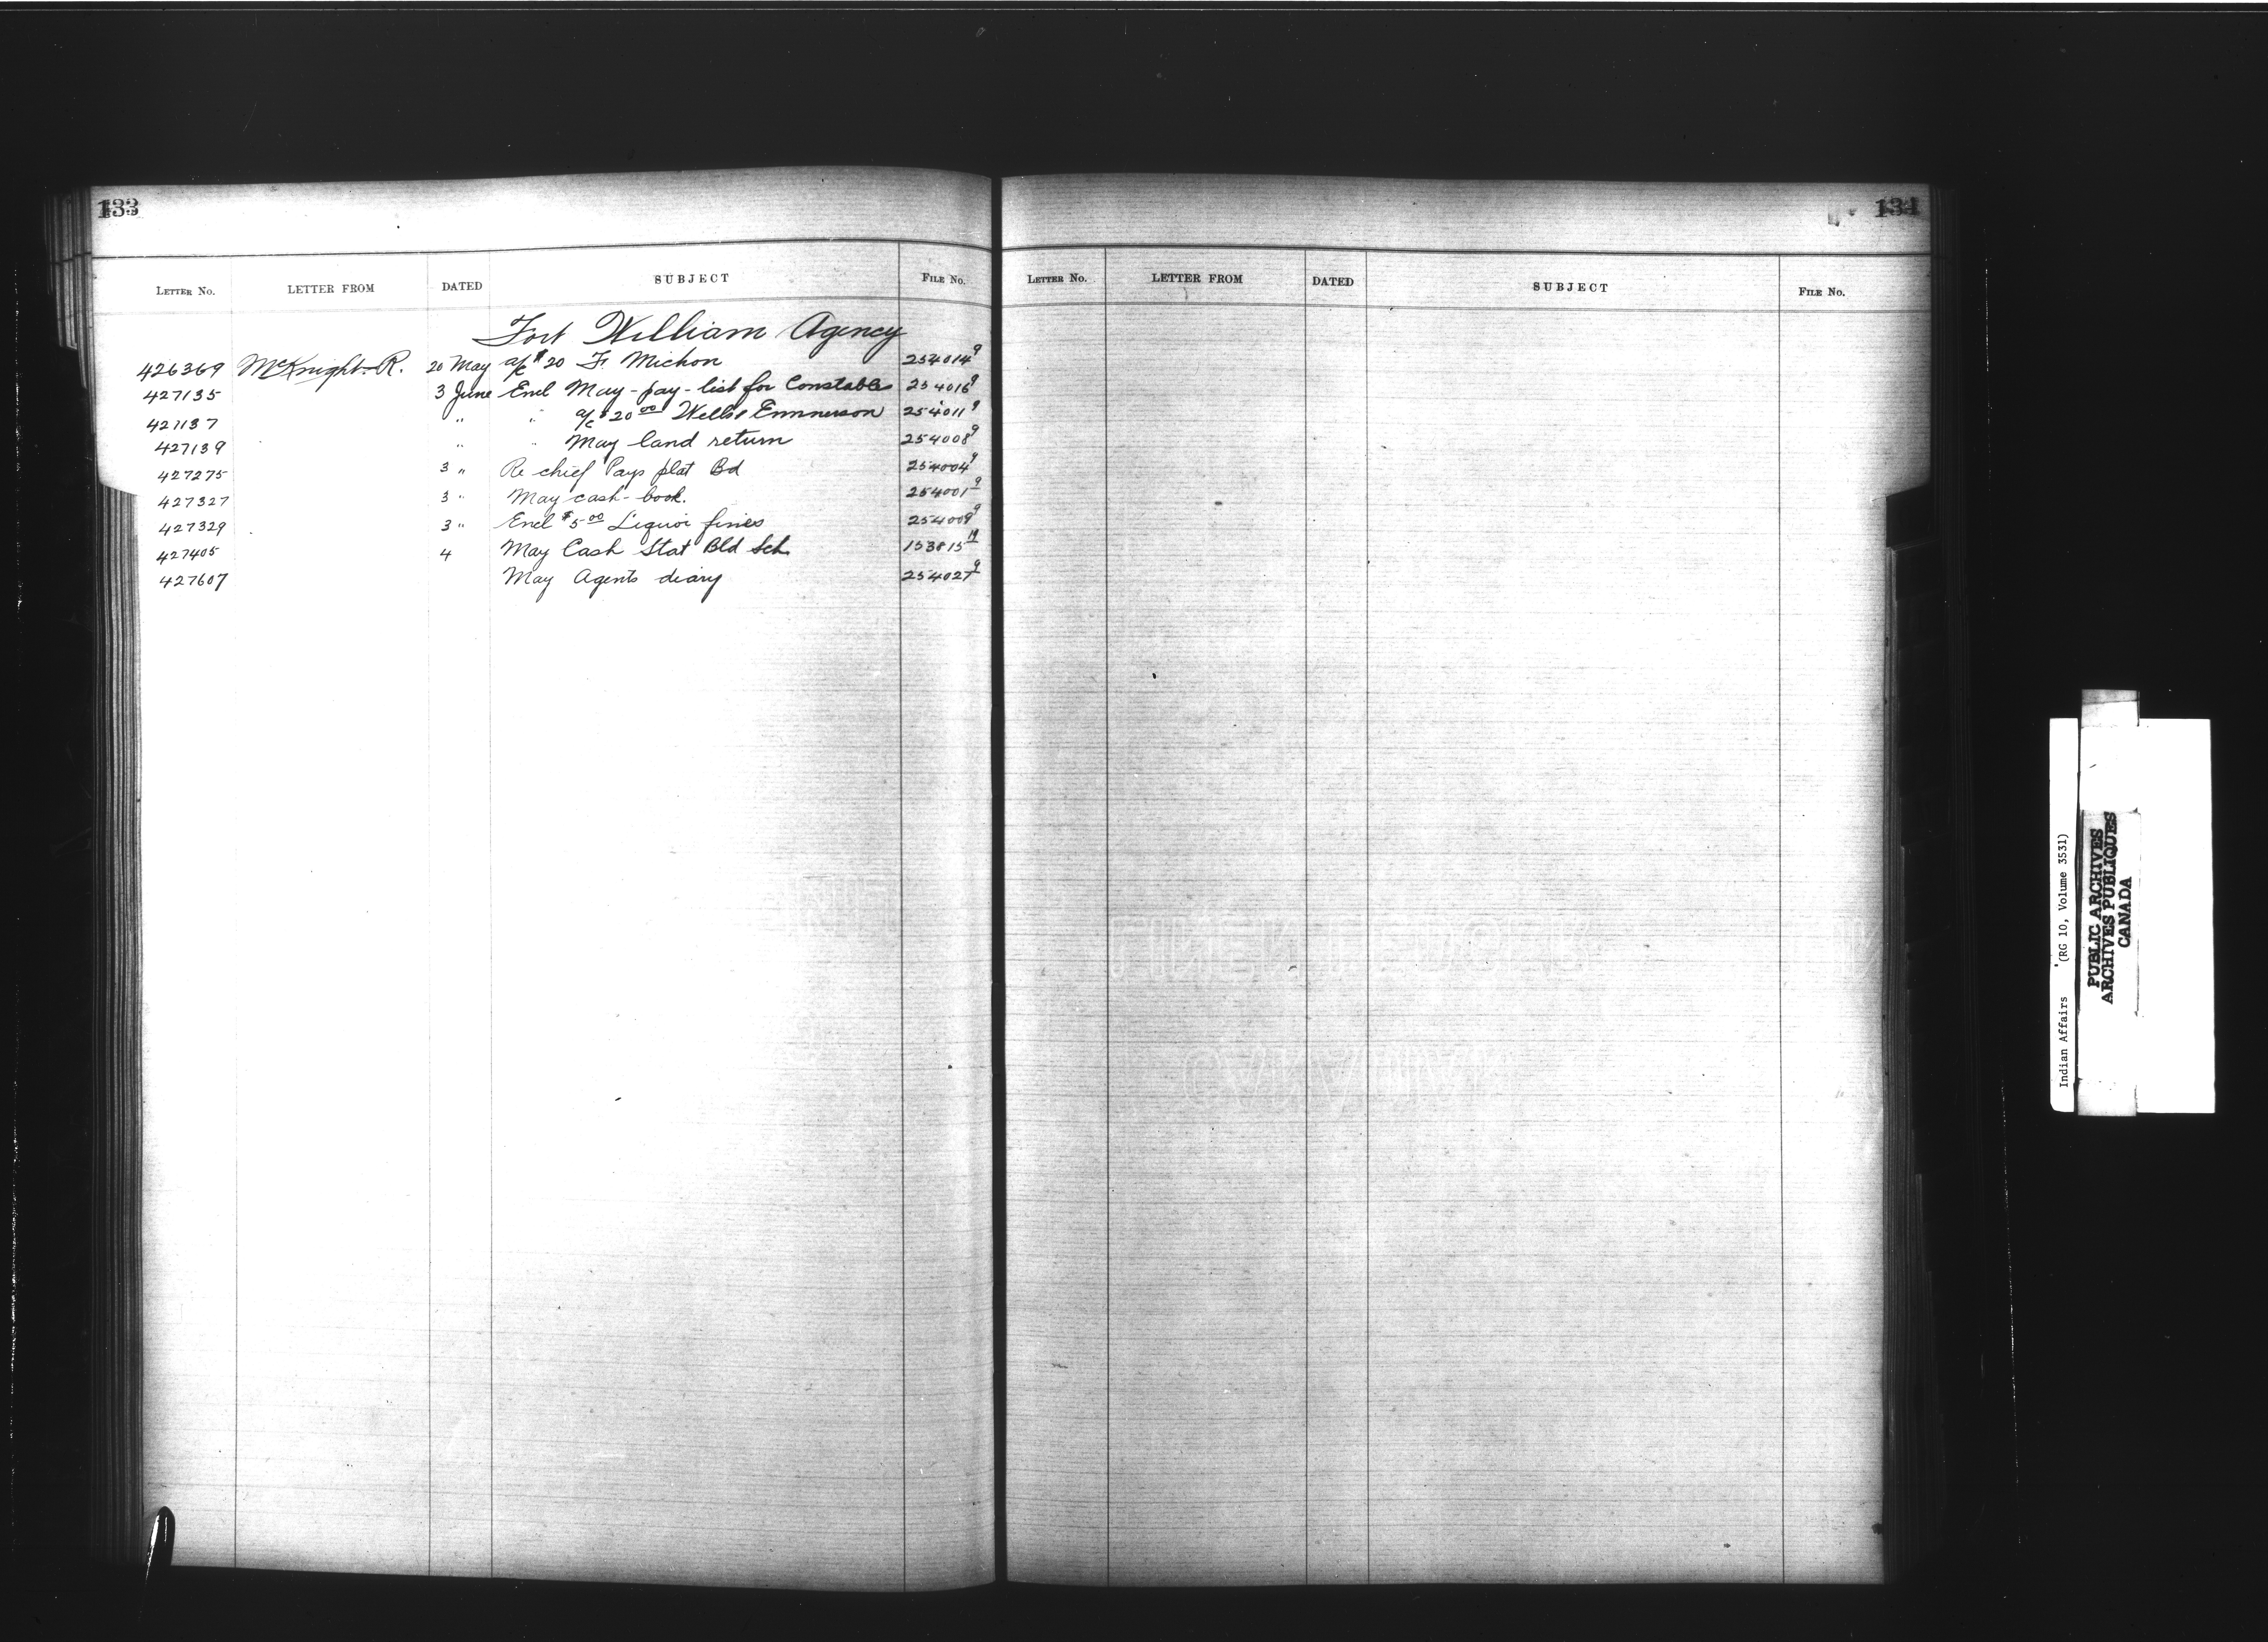 133
LETTER No. LETTER FROM DATED SUBJECT FILE No.
Fort William Agency
426369 McKnight R. 20 May a/c $20 F. Michon 254014⁹
427135 3 June Encl May-pay-list for Constables 254016⁹
427137 " " a/c $20 00 Wellie Emmerson 254011⁹
427139 " " May land return 254008⁹
427275 3 " Re chief Pays plat Bd 254004⁹
427327 3 " May cash-book. 254001⁹
427329 3 " Encl $5 00 Liquor fines 254009⁹
427405 4 May Cash Stat Bld Sch 153815¹⁹
427607 May Agents diary 254027⁹
134
LETTER No. LETTER FROM DATED SUBJECT FILE No.
Indian Affairs (RG 10, Volume 3531)
PUBLIC ARCHIVES
ARCHIVES PUBLIQUES
CANADA